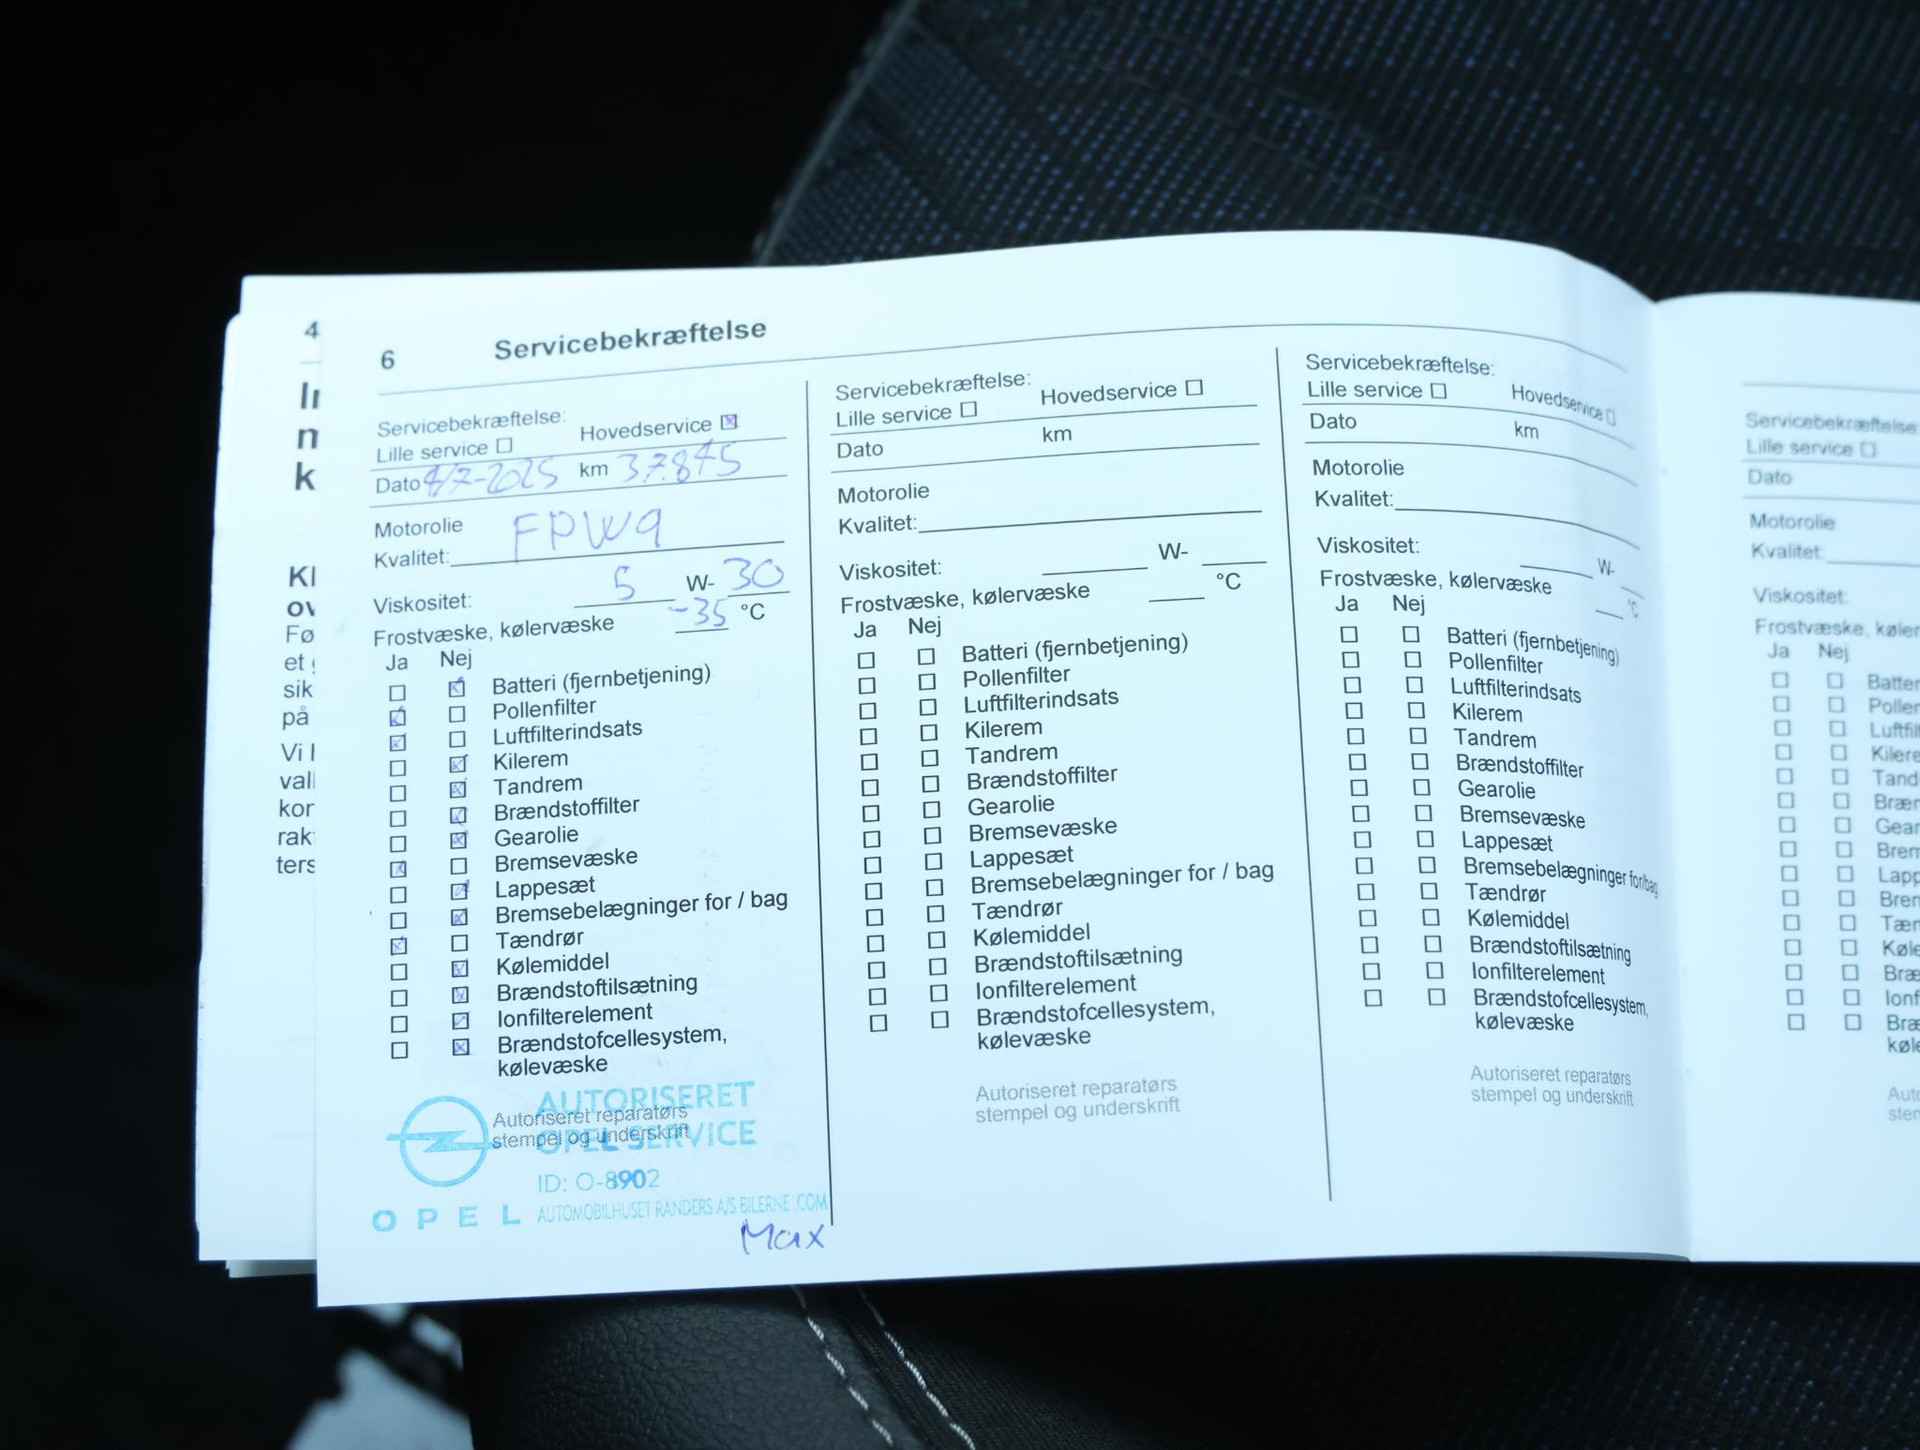 4
6 Servicebekræftelse
Servicebekræftelse:
Lille service ☐ Hovedservice ☒
Dato 4/7-2025 km 37.845
Motorolie
Kvalitet: FPW9
Viskositet: 5 W-30
Frostvæske, kølervæske -35 °C
Ja Nej
☐ ☒ Batteri (fjernbetjening)
☒ ☐ Pollenfilter
☒ ☐ Luftfilterindsats
☐ ☒ Kilerem
☐ ☒ Tandrem
☐ ☒ Brændstoffilter
☐ ☒ Gearolie
☒ ☐ Bremsevæske
☐ ☒ Lappesæt
☐ ☒ Bremsebelægninger for / bag
☒ ☐ Tændrør
☐ ☒ Kølemiddel
☐ ☒ Brændstoftilsætning
☐ ☒ Ionfilterelement
☐ ☒ Brændstofcellesystem,
kølevæske
Autoriseret reparatørs
stempel og underskrift
AUTORISERET
OPEL SERVICE
ID: O-8902
OPEL AUTOMOBILHUSET RANDERS A/S BILERNE.COM
Max
Servicebekræftelse:
Lille service ☐ Hovedservice ☐
Dato km
Motorolie
Kvalitet:
Viskositet: W-
Frostvæske, kølervæske °C
Ja Nej
☐ ☐ Batteri (fjernbetjening)
☐ ☐ Pollenfilter
☐ ☐ Luftfilterindsats
☐ ☐ Kilerem
☐ ☐ Tandrem
☐ ☐ Brændstoffilter
☐ ☐ Gearolie
☐ ☐ Bremsevæske
☐ ☐ Lappesæt
☐ ☐ Bremsebelægninger for / bag
☐ ☐ Tændrør
☐ ☐ Kølemiddel
☐ ☐ Brændstoftilsætning
☐ ☐ Ionfilterelement
☐ ☐ Brændstofcellesystem,
kølevæske
Autoriseret reparatørs
stempel og underskrift
Servicebekræftelse:
Lille service ☐ Hovedservice ☐
Dato km
Motorolie
Kvalitet:
Viskositet: W-
Frostvæske, kølervæske °C
Ja Nej
☐ ☐ Batteri (fjernbetjening)
☐ ☐ Pollenfilter
☐ ☐ Luftfilterindsats
☐ ☐ Kilerem
☐ ☐ Tandrem
☐ ☐ Brændstoffilter
☐ ☐ Gearolie
☐ ☐ Bremsevæske
☐ ☐ Lappesæt
☐ ☐ Bremsebelægninger for/bag
☐ ☐ Tændrør
☐ ☐ Kølemiddel
☐ ☐ Brændstoftilsætning
☐ ☐ Ionfilterelement
☐ ☐ Brændstofcellesystem,
kølevæske
Autoriseret reparatørs
stempel og underskrift
Servicebekræftelse
Lille service ☐
Dato
Motorolie
Kvalitet:
Viskositet:
Frostvæske,
Ja Nej